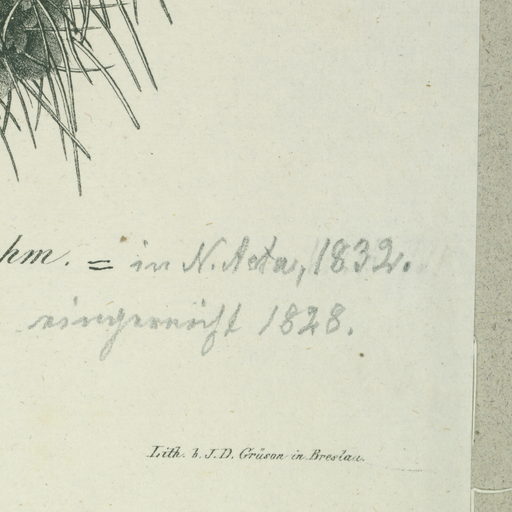 hm. = in N. Acta, 1832.
eingereicht 1828.
Lith. b. J. D. Grüson in Breslau.